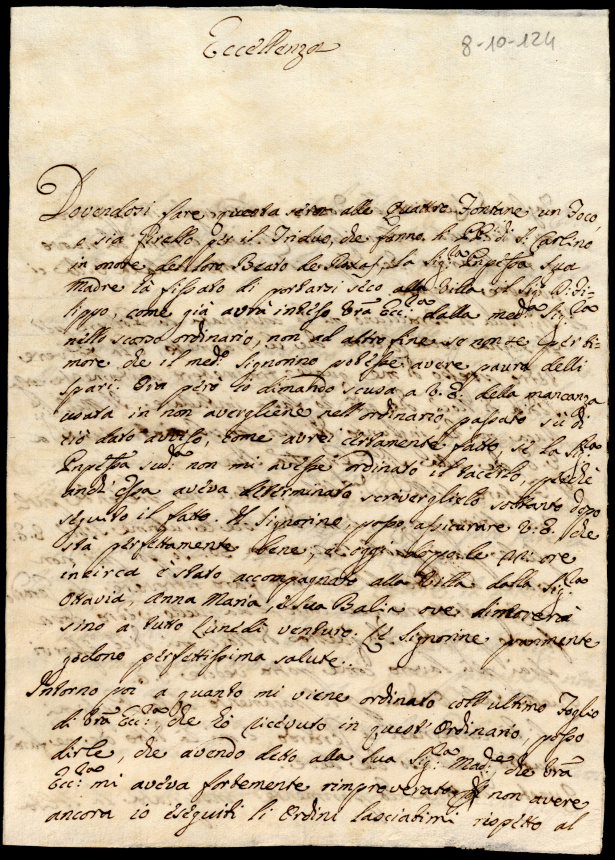 Eccellenza
8-10-124
Dovendosi fare questa sera alle Quattro Fontane un Foco,
o sia Girello per il Triduo, che fanno li PP. di S. Carlino
in onore del loro Beato de Roxas, la Sig.ra Pnpessa sua
Madre hà fissato di portarsi seco alla Villa il Sig. D. Fi-
lippo, come già avrà inteso Vra Ecc.za dalla med.a Sig.ra
nello scorso ordinario, non ad altro fine se non te per ti-
more che il med.o Signorino potesse avere paura delli
spari. Ora però io dimando scusa a V. E. della mancanza
usata in non avergliene nell'ordinario passato su di
ciò dato avviso, come avrei certamente fatto, se la Sig.ra
Pnpessa sud.a non mi avesse ordinato il tacerlo, perchè
anch'essa aveva determinato scriverglielo soltanto dopo
seguito il fatto. Il Signorino, posso assicurare V. E. che
stà perfettamente bene, e oggi dopo le ore
incirca è stato accompagnato alla Villa dalla Sig.ra
Ottavia, Anna Maria, e sua Balia ove dimorerà
sino a tutto Lunedì venturo. Le Signorine parimente
godono perfettissima salute.
Intorno poi a quanto mi viene ordinato coll'ultimo Foglio
di Vra Ecc.za, che hò ricevuto in quest'Ordinario, posso
dirle, che avendo detto alla sua Sig.ra Mad.e che Vra
Ecc.za mi aveva fortemente rimproverato non avere
ancora io eseguiti li Ordini lasciatimi rispetto al